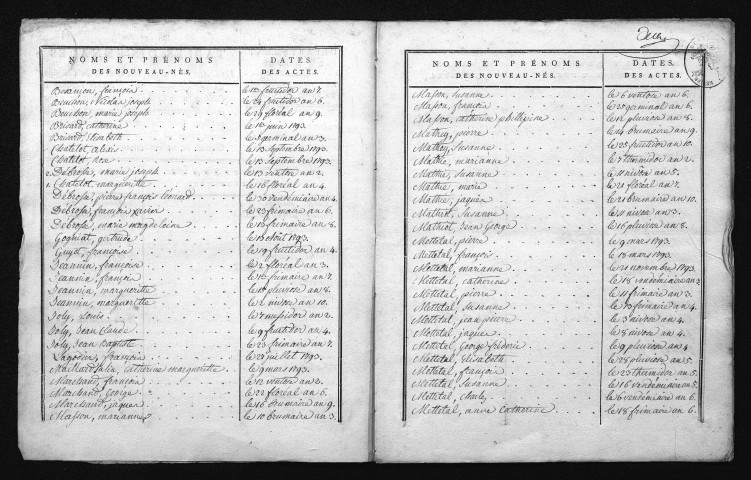 NOMS ET PRÉNOMS
DES NOUVEAU-NÉS.
DATES
DES ACTES.
Besançon, françois le 12 fruitidor an 7.
Bouchon, Nicolas joseph le 24 fruitidor an 6.
Bouchon, marie joseph le 29 floréal an 9.
Brisard, catherine le 1er juin 1793.
Brisard, Elisabeth le 3 germinal an 3.
Chatelot, alexis le 13 Septembre 1793.
Chatelot, rose le 13 Septembre 1793.
2. Débrosse, marie joseph le 13 ventôse an 2.
1. Chatelot, margueritte le 16 floréal an 4.
Débrosse, pierre françois léonard le 30 vendémiaire an 4.
Débrosse, françois xavier le 23 frimaire an 6.
Débrosse, marie magdeleine le 13 frimaire an 8.
Gogniat, gertrude le 13 août 1793.
Guyot, françoise le 19 fruitidor an 4.
Jeannin, françoise le 2 floréal an 3.
Jeannin, françois le 1er frimaire an 7.
Jeannin, marguerite le 1er pluviose an 8.
Jeannin, marguerite le 2 nivose an 10.
Joly, Louis le 7 messidor an 2.
Joly, Jean Claude le 9 fruitidor an 4.
Joly, Jean Baptiste le 23 frimaire an 7.
Lagodin, françois le 29 juillet 1793.
Maillard Salin, catherine marguerite le 9 mars 1793.
Marchand, françois le 12 ventose an 2.
Marchand, George le 22 floréal an 6.
Marchand, jaques le 16 brumaire an 9.
Masson, marianne le 10 brumaire an 3.
NOMS ET PRÉNOMS
DES NOUVEAU-NÉS.
DATES
DES ACTES.
Masson, Susanne le 6 ventose an 6.
Masson, françois le 20 germinal an 6.
Masson, catherine philippine le 12 pluviose an 8.
Mathey, pierre le 14 brumaire an 9.
Mathey, Susanne le 25 fruitidor an 10.
Mathié, marianne le 7 thermidor an 2.
Mathié, Susanne le 11 nivose an 5.
Mathié, marie le 21 floréal an 7.
Mathié, jaques le 21 brumaire an 10.
Mathiot, Susanne le 11 nivose an 3.
Mathiot, Jean George le 16 pluviose an 8.
Mettetal, pierre le 9 mars 1793.
Mettetal, françois le 18 mars 1793.
Mettetal, marianne le 21 novembre 1793.
Mettetal, catherine le 18 vendémiaire an 3
Mettetal, pierre le 11 frimaire an 3.
Mettetal, Susanne le 13 frimaire an 4.
Mettetal, jean pierre le 3 nivose an 4.
Mettetal, jaques le 8 nivose an 4.
Mettetal, George fréderic le 9 pluviose an 4.
Mettetal, Elisabeth le 28 pluviose an 5.
Mettetal, françois le 23 thermidor an 5.
Mettetal, Susanne le 16 vendémiaire an 5.
Mettetal, Charles le 6 vendémiaire an 6.
Mettetal, anne Catherine le 18 frimaire an 6.